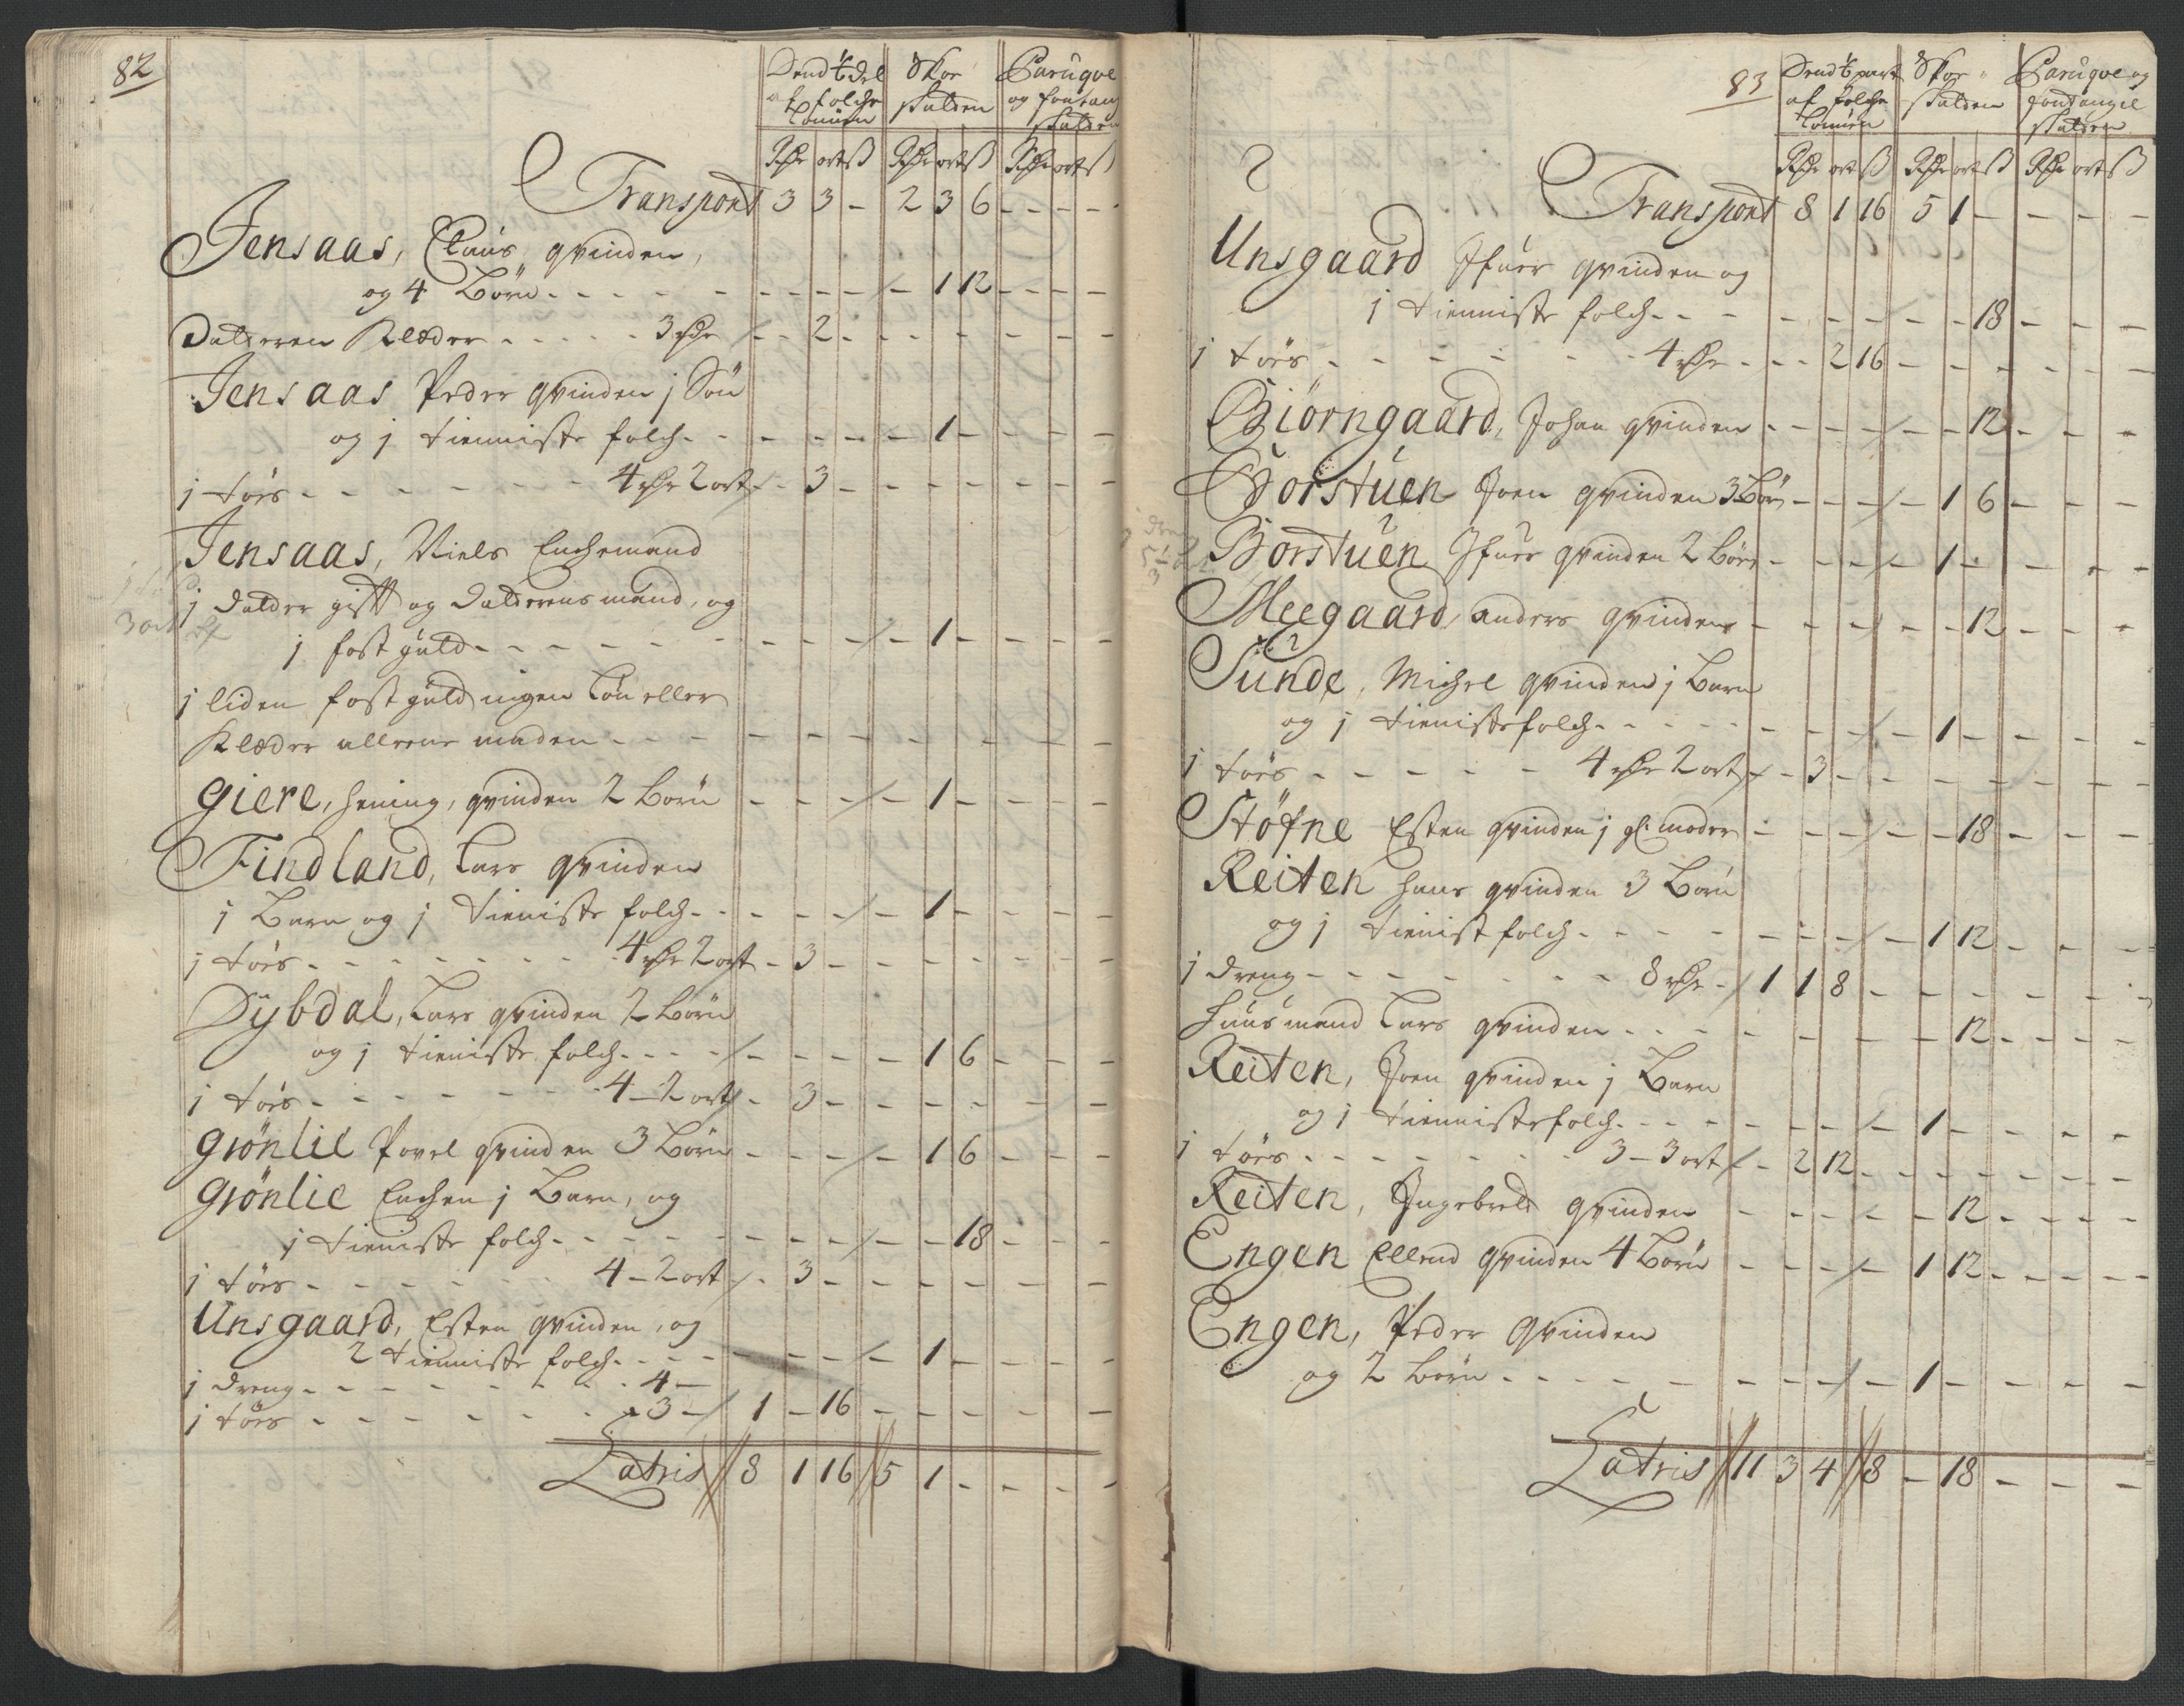 82
Dend 1/6 del af folche Lønnen | Skoe skatten | Paruqve og fontang skatten
Rdr ort ß | Rdr ort ß | Rdr ort ß
Transport 3 3 - 2 3 6 - - -
Jensaas, Claus, qvinden,
og 4 Børn - - - 1 12 - - -
Datteren Klæder - - 3 Rdr - 2 - - - -
Jensaas Peder qvinden j Søn
og j tienniste folch - - - 1 - - - -
j tøes - - - 4 Rdr 2 ort - 3 - - - -
Jensaas, Niels Enchemand
j datter gifft og datterens mand, og
3 ort
j fost guld - - - 1 - - - -
j liden fost guld ingen Løn eller
Klæder alleene maden - - - -
Giere, Hening, qvinden 2 Børn - - - 1 - - - -
Findland, Lars qvinden
j Barn og j tieniste folch - - - 1 - - - -
j tøes - - - 4 Rdr 2 ort - 3 - - - -
Dybdal, Lars qvinden 2 Børn
og j tieniste folch - - - 1 6 - - -
j tøes - - - 4 - 2 ort - 3 - - - -
Grønlie Povel qvinden 3 Børn - - - 1 6 - - -
Grønlie Enchen j Barn, og
j tieniste folch - - - - 18 - - -
j tøes - - - 4 - 2 ort - 3 - - - -
Unsgaard, Esten qvinden, og
2 tienniste folch - - - 1 - - - -
j dreng - - - 4 -
j tøes - - - 3 - 1 - 16 - - - -
Latris 8 1 16 5 1 - - - -
83
Dend 1/6 part af folche Lønnen | Skoe skatten | Paruqve og fontangie skatten
Rdr ort ß | Rdr ort ß | Rdr ort ß
Transport 8 1 16 5 1 - - - -
Unsgaard Ifuer qvinden og
j tienniste folch - - - - 18 - - -
j tøes - - - 4 Rdr - - 2 16 - - - -
Biørngaard, Johan qvinden - - - - 12 - - -
Borstuen Joen qvinden 3 Børn - - - 1 6 - - -
Borstuen Ifuer qvinden 2 Børn - - - 1 - - - -
Meegaard, anders qvinden - - - - 12 - - -
Sunde, Michel qvinden j Barn
og j tienistefolch - - - 1 - - - -
j tøes - - - 4 Rdr 2 ort - 3 - - - -
Støfne Esten qvinden j gl. moder - - - - 18 - - -
Reiten Hans qvinden 3 Børn
og j tienist folch - - - 1 12 - - -
j dreng - - - 8 Rdr - 1 1 8 - - - -
Huusmand Lars qvinden - - - - 12 - - -
Reiten, Joen qvinden j Barn
og j tiennistefolch - - - 1 - - - -
j tøes - - - 3 - 3 ort - 2 12 - - - -
Reiten, Ingebreld qvinden - - - - 12 - - -
Engen Ellend qvinden 4 Børn - - - 1 12 - - -
Engen, Peder qvinden
og 2 Børn - - - 1 - - - -
Latris 11 3 4 8 - 18 - - -